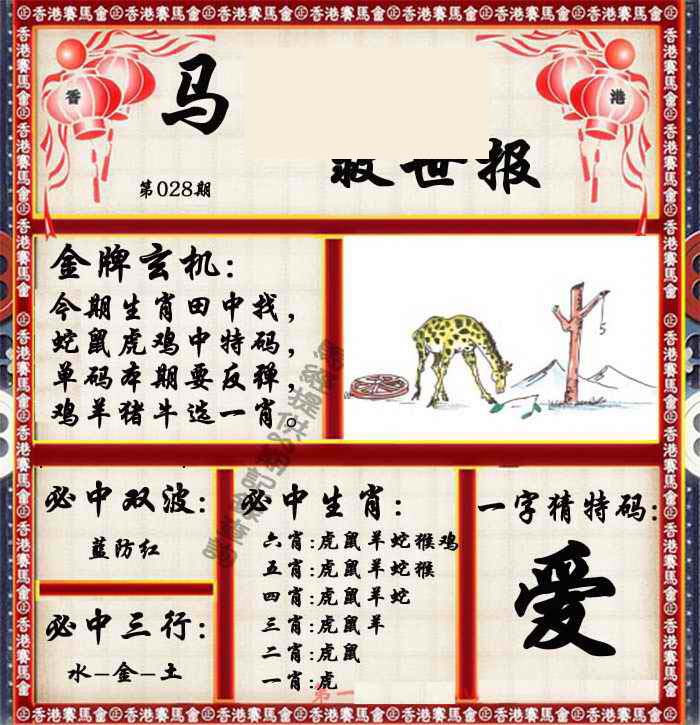 香港賽馬會㊣香港賽馬會㊣香港賽馬會㊣香港賽馬會㊣香港賽馬會㊣香港賽馬會
香
港
马
救世报
第028期
金牌玄机:
今期生肖田中找,
蛇鼠虎鸡中特码,
单码本期要反弹,
鸡羊猪牛选一肖。
5
必中双波:
蓝防红
必中三行:
水–金–土
必中生肖:
六肖:虎鼠羊蛇猴鸡
五肖:虎鼠羊蛇猴
四肖:虎鼠羊蛇
三肖:虎鼠羊
二肖:虎鼠
一肖:虎
第一
一字猜特码:
爱